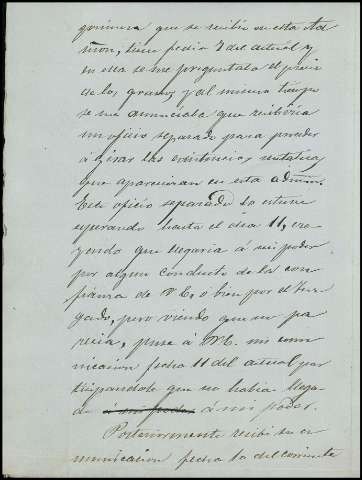 primera que se recibió en esta Ad
món, tiene fecha 7 del actual y
en ella se me preguntaba el precio
de los granos, y al mismo tiempo
se me anunciaba que recibiria
un oficio separado para proceder
á girar las existencias
que aparecieran en esta admón.
Este oficio separado lo estuve
esperando hasta el dia 11, cre
yendo que llegaria á mi poder
por algun conducto de la con
fianza de V.E, ó bien por el Juz
gado, pero viendo que no pa
recia, puse á V.E. mi comu
nicacion fecha 11 del actual par
ticipandole que no habia llega
do á mi poder á mi poder.
Posteriormente recibí su co
municacion fecha 10 del corriente